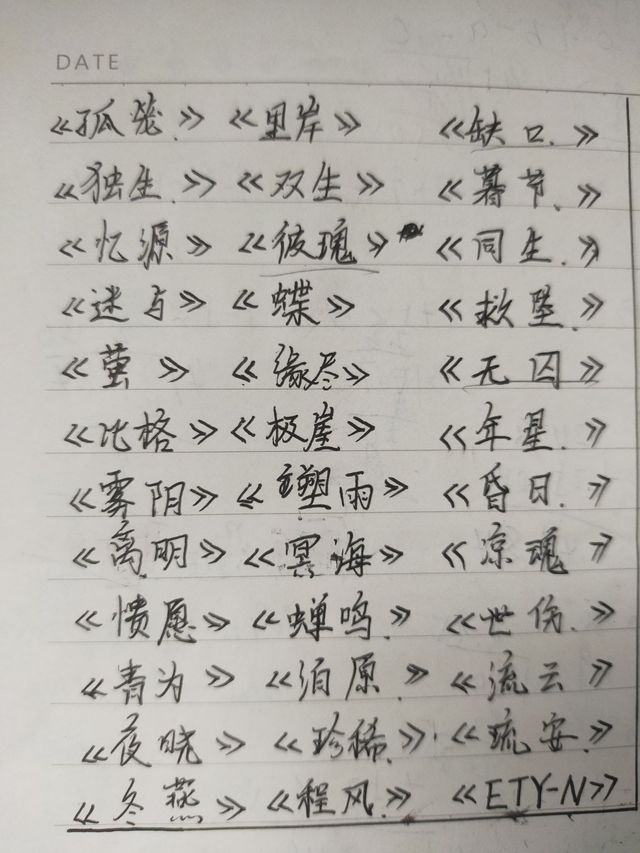 DATE
《孤笼.》 《里岸》 《缺口.》
《独生.》 《双生》 《暮节.》
《忆源》 《彼瑰》 《同生.》
《迷与》 《蝶》 《救坠.》
《萤》 《缘尽》 《无囚》
《比格》 《极崖》 《年星.》
《雾阴》 《塑雨》 《昏日.》
《离明》 《冥海》 《凉魂》
《愦愿》 《蝉鸣.》 《世伤.》
《青为》 《泊原.》 《流云》
《夜晓》 《珍稀.》 《琉安.》
《冬燕》 《程风.》 《ETY-N》